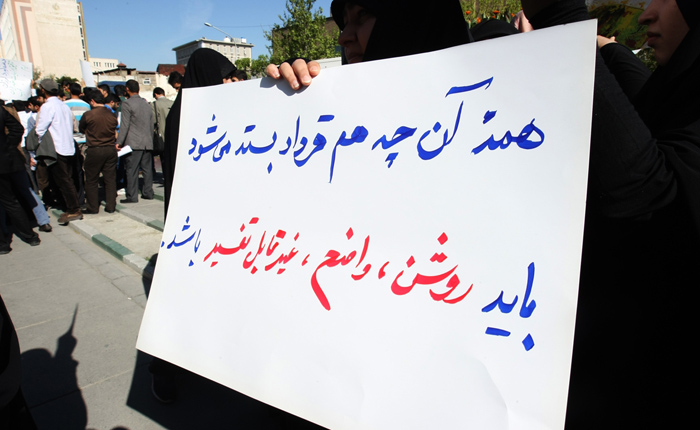 همهٔ آن چه هم قرداد بسته می‌شود
باید روشن، واضع، غیرقابل تفسیر باشد.